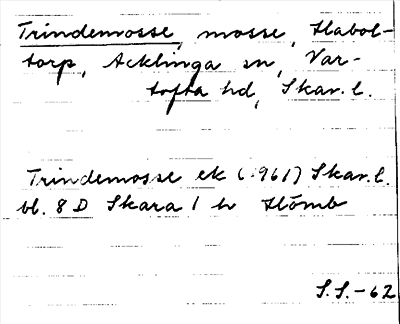 Trindemosse, mosse, Stabol-
torp, Acklinga sn, Var-
tofta hd, Skar. l.
Trindemosse ek (1961) Skar. l.
bl. 8 D Skara 1 h
S.S.-62